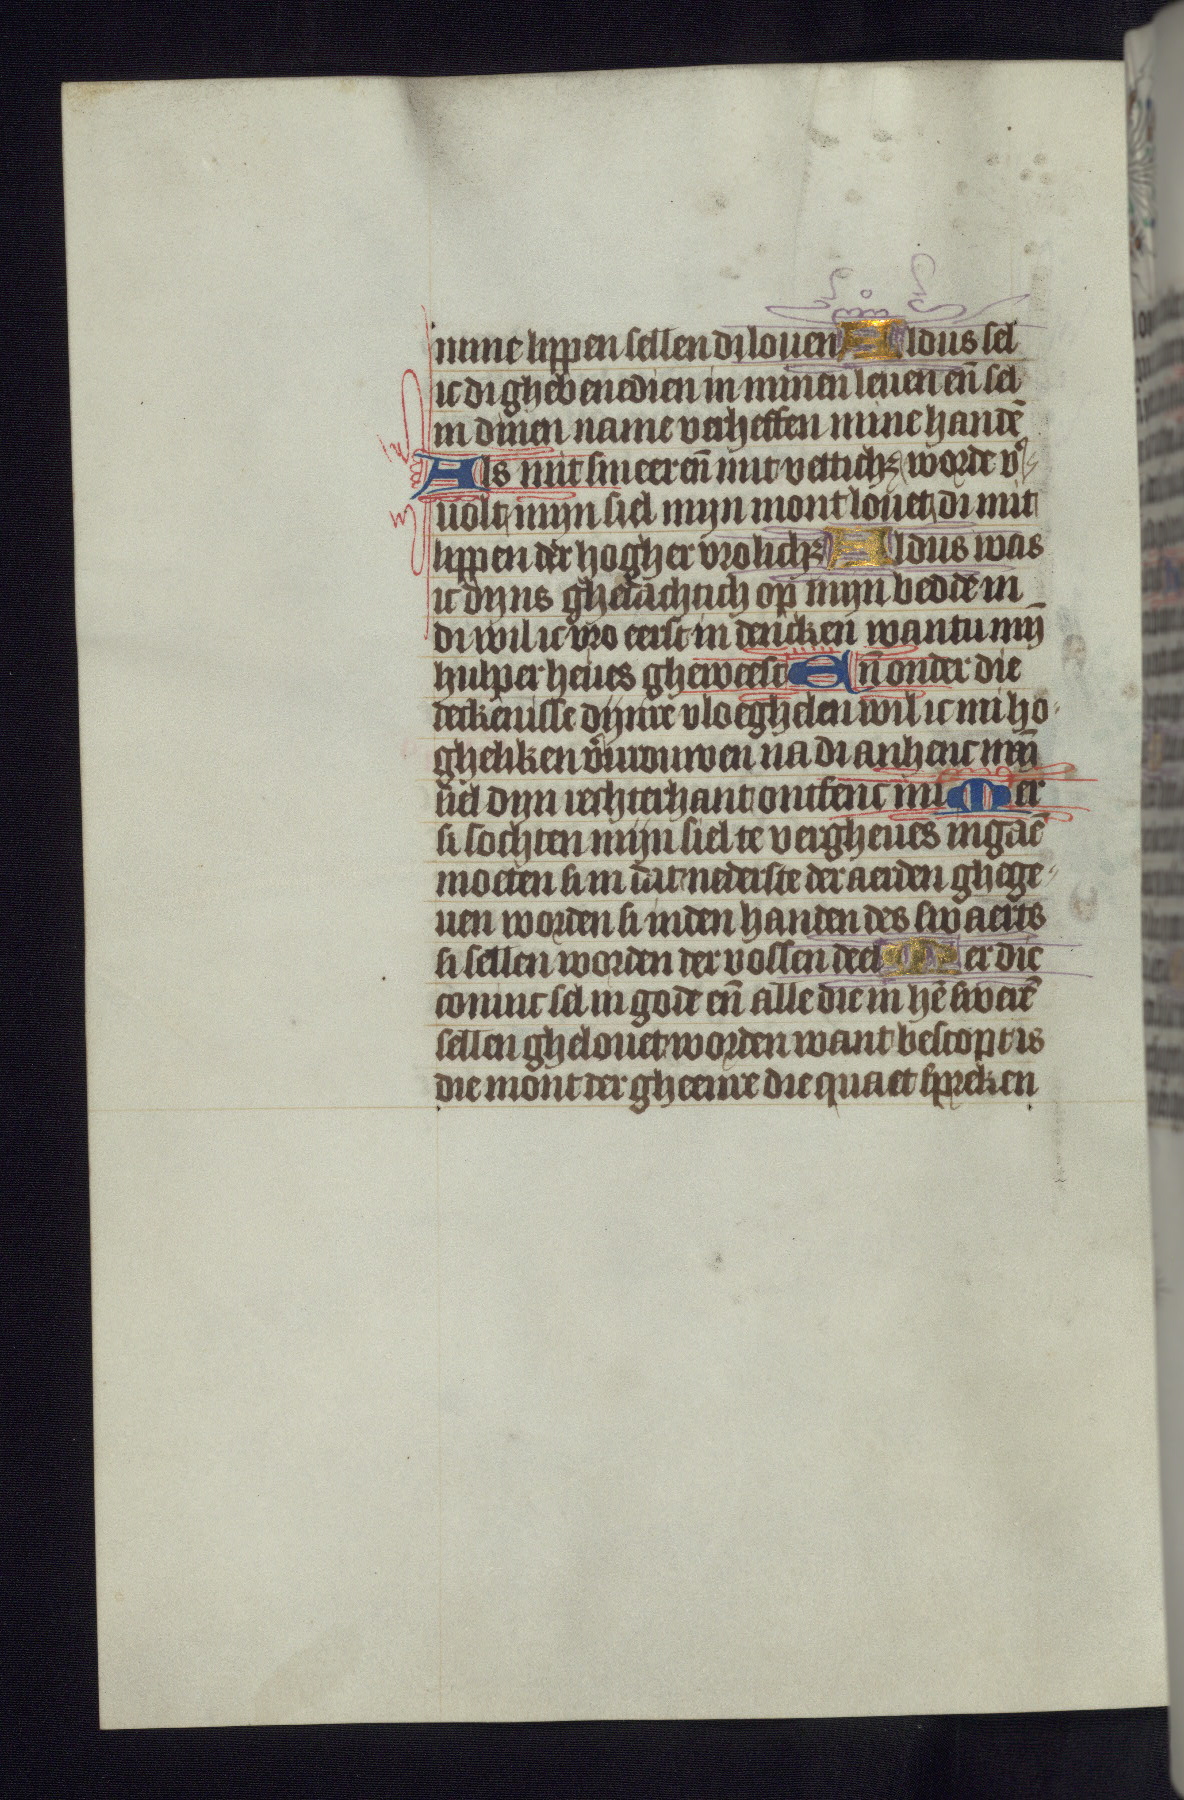 mine lippen sellen di louen Aldus sel
ic di ghebenedien in minen leuen en̄ sel
in dinen name verheffen mine handē
Als mit smeer en̄ mit vetticheit worde v̓
uolt mijn siel mijn mont louet di mit
lippen der hogher vrolicheit Aldus was
ic dijns ghedachtich op mijn bedde in
di wil ic vro eerst in dencken want u mȳ
hulper heues gheweest En̄ onder die
deckenisse dijnre vloeghelen wil ic mi ho
gheliken v̓urouwen na di anhenc mȳ
siel dijn rechterhant ontfenc mi Mer
si sochten mijn siel te vergheues ingaē
moeten si in dat nederste der aerden ghege
uen worden si inden handen des swaerts
si sellen worden der vossen deel Mer die
coninc sel in gode en̄ alle die in hē swerē
sellen ghelouet worden want bestopt is
die mont der gheenre die quaet spreken